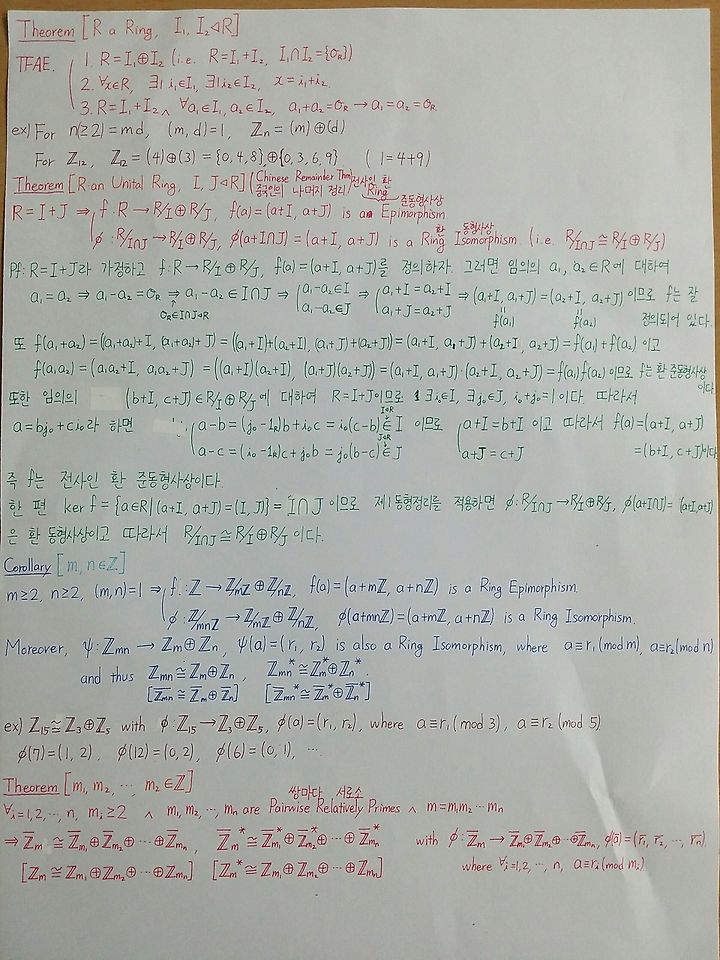 Theorem [R a Ring, I₁, I₂ ◁ R]
TFAE. 1. R=I₁⊕I₂ (i.e. R=I₁+I₂, I₁∩I₂={0_R})
2. ∀x∈R, ∃1 i₁∈I₁, ∃1 i₂∈I₂, x=i₁+i₂.
3. R=I₁+I₂ ∧ ∀a₁∈I₁, a₂∈I₂, a₁+a₂=0_R → a₁=a₂=0_R
ex) For n(≥2)=md, (m, d)=1, ℤ_n=(m)⊕(d)
For ℤ₁₂, ℤ₁₂=(4)⊕(3)={0,4,8}⊕{0,3,6,9} (1=4+9)
Theorem [R an Unital Ring, I, J◁R] (Chinese Remainder Thm) 중국인의 나머지 정리
R=I+J ⇒ f: R→R/I⊕R/J, f(a)=(a+I, a+J) is a 전사인 환 Ring 준동형사상 Epimorphism.
φ: R/I∩J→R/I⊕R/J, φ(a+I∩J)=(a+I, a+J) is a 환 Ring 동형사상 Isomorphism. (i.e. R/I∩J≅R/I⊕R/J)
pf: R=I+J라 가정하고 f: R→R/I⊕R/J, f(a)=(a+I, a+J)를 정의하자. 그러면 임의의 a₁, a₂∈R에 대하여
a₁=a₂ ⇒ a₁-a₂=0_R ⇒ a₁-a₂∈I∩J ⇒ a₁-a₂∈I a₁-a₂∈J ⇒ a₁+I=a₂+I a₁+J=a₂+J ⇒ (a₁+I, a₁+J)=(a₂+I, a₂+J)이므로 f는 잘
0_R∈I∩J◁R f(a₁) f(a₂) 정의되어 있다.
또 f(a₁+a₂)=((a₁+a₂)+I, (a₁+a₂)+J)=((a₁+I)+(a₂+I), (a₁+J)+(a₂+J))=(a₁+I, a₁+J)+(a₂+I, a₂+J)=f(a₁)+f(a₂)이고
f(a₁a₂)=(a₁a₂+I, a₁a₂+J)=((a₁+I)(a₂+I), (a₁+J)(a₂+J))=(a₁+I, a₁+J)·(a₂+I, a₂+J)=f(a₁)f(a₂)이므로 f는 환 준동형사상이다.
또한 임의의 (b+I, c+J)∈R/I⊕R/J에 대하여 R=I+J이므로 ∃i₀∈I, ∃j₀∈J, i₀+j₀=1이다. 따라서
a=bj₀+ci₀라 하면 a-b=(j₀-1_R)b+i₀c=i₀(c-b)∈I 이므로 a+I=b+I 이고 따라서 f(a)=(a+I, a+J)
a-c=(i₀-1_R)c+j₀b=j₀(b-c)∈J a+J=c+J =(b+I, c+J)이다
즉 f는 전사인 환 준동형사상이다.
한 편 ker f={a∈R|(a+I, a+J)=(I,J)}=I∩J이므로 제1동형정리를 적용하면 φ: R/I∩J→R/I⊕R/J, φ(a+I∩J)=(a+I,a+J)
은 환 동형사상이고 따라서 R/I∩J≅R/I⊕R/J이다.
Corollary [m, n∈ℤ]
m≥2, n≥2, (m,n)=1 ⇒ f: ℤ→ℤ/mℤ⊕ℤ/nℤ, f(a)=(a+mℤ, a+nℤ) is a Ring Epimorphism.
φ: ℤ/mnℤ→ℤ/mℤ⊕ℤ/nℤ, φ(a+mnℤ)=(a+mℤ, a+nℤ) is a Ring Isomorphism.
Moreover, ψ: ℤ_mn→ℤ_m⊕ℤ_n, ψ(a)=(r₁, r₂) is also a Ring Isomorphism, where a≡r₁(mod m), a≡r₂(mod n)
and thus ℤ_mn≅ℤ_m⊕ℤ_n, ℤ_mn*≅ℤ_m*⊕ℤ_n*.
[ℤ̅_mn≅ℤ̅_m⊕ℤ̅_n] [ℤ̅_mn*≅ℤ̅_m*⊕ℤ̅_n*]
ex) ℤ₁₅≅ℤ₃⊕ℤ₅ with φ: ℤ₁₅→ℤ₃⊕ℤ₅, φ(a)=(r₁, r₂), where a≡r₁(mod 3), a≡r₂(mod 5)
φ(7)=(1, 2), φ(12)=(0, 2), φ(6)=(0, 1), ….
Theorem [m₁, m₂, ⋯, m₂∈ℤ]
쌍마다 서로소
∀i=1,2,⋯, n, m_i≥2 ∧ m₁, m₂, ⋯, m_n are Pairwise Relatively Primes ∧ m=m₁m₂⋯m_n
⇒ ℤ̅_m≅ℤ̅_m₁⊕ℤ̅_m₂⊕⋯⊕ℤ̅_m_n, ℤ̅_m*≅ℤ̅_m₁*⊕ℤ̅_m₂*⊕⋯⊕ℤ̅_m_n* with φ: ℤ̅_m→ℤ̅_m₁⊕ℤ̅_m₂⊕⋯⊕ℤ̅_m_n, φ(a̅)=(r̅₁, r̅₂, ⋯, r̅_n).
[ℤ_m≅ℤ_m₁⊕ℤ_m₂⊕⋯⊕ℤ_m_n] [ℤ_m*≅ℤ_m₁⊕ℤ_m₂⊕⋯⊕ℤ_m_n] where ∀i=1,2,⋯, n, a≡r_i(mod m_i)